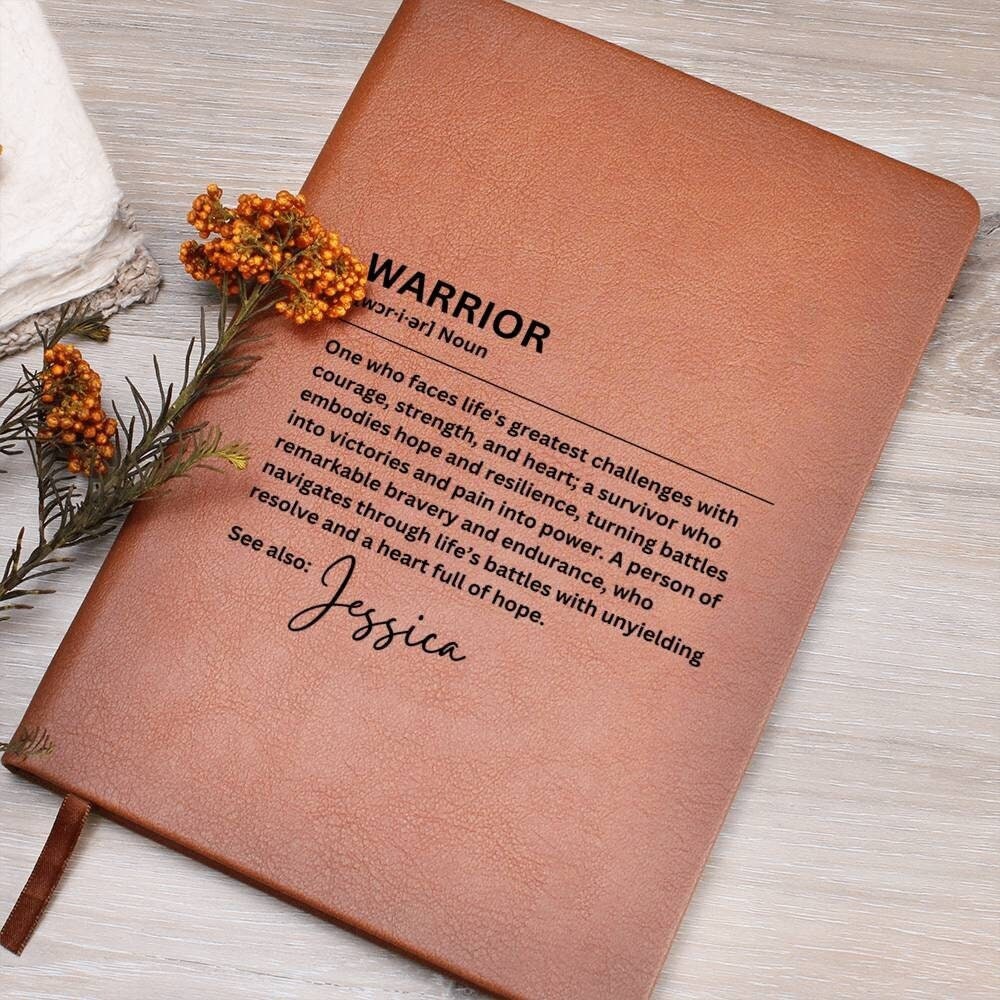 WARRIOR
[wɔr·i·ər] Noun
One who faces life's greatest challenges with
courage, strength, and heart; a survivor who
embodies hope and resilience, turning battles
into victories and pain into power. A person of
remarkable bravery and endurance, who
navigates through life’s battles with unyielding
resolve and a heart full of hope.
See also: Jessica